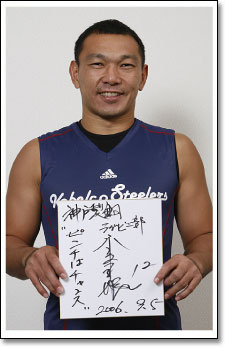 adidas
Kobelco Steelers
神戸製鋼
ラグビー部
"ピンチはチャンス"
12
2006. 9.5